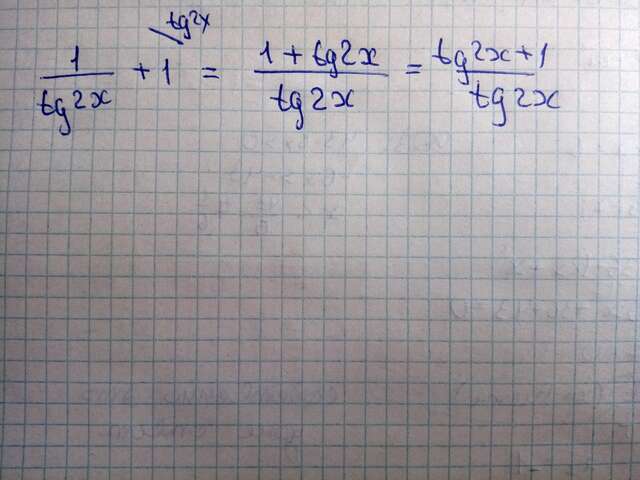 tg2x
1/tg2x + 1 = (1 + tg2x)/tg2x = (tg2x + 1)/tg2x